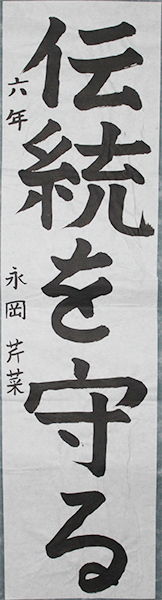 伝統を守る
六年 永岡芹菜